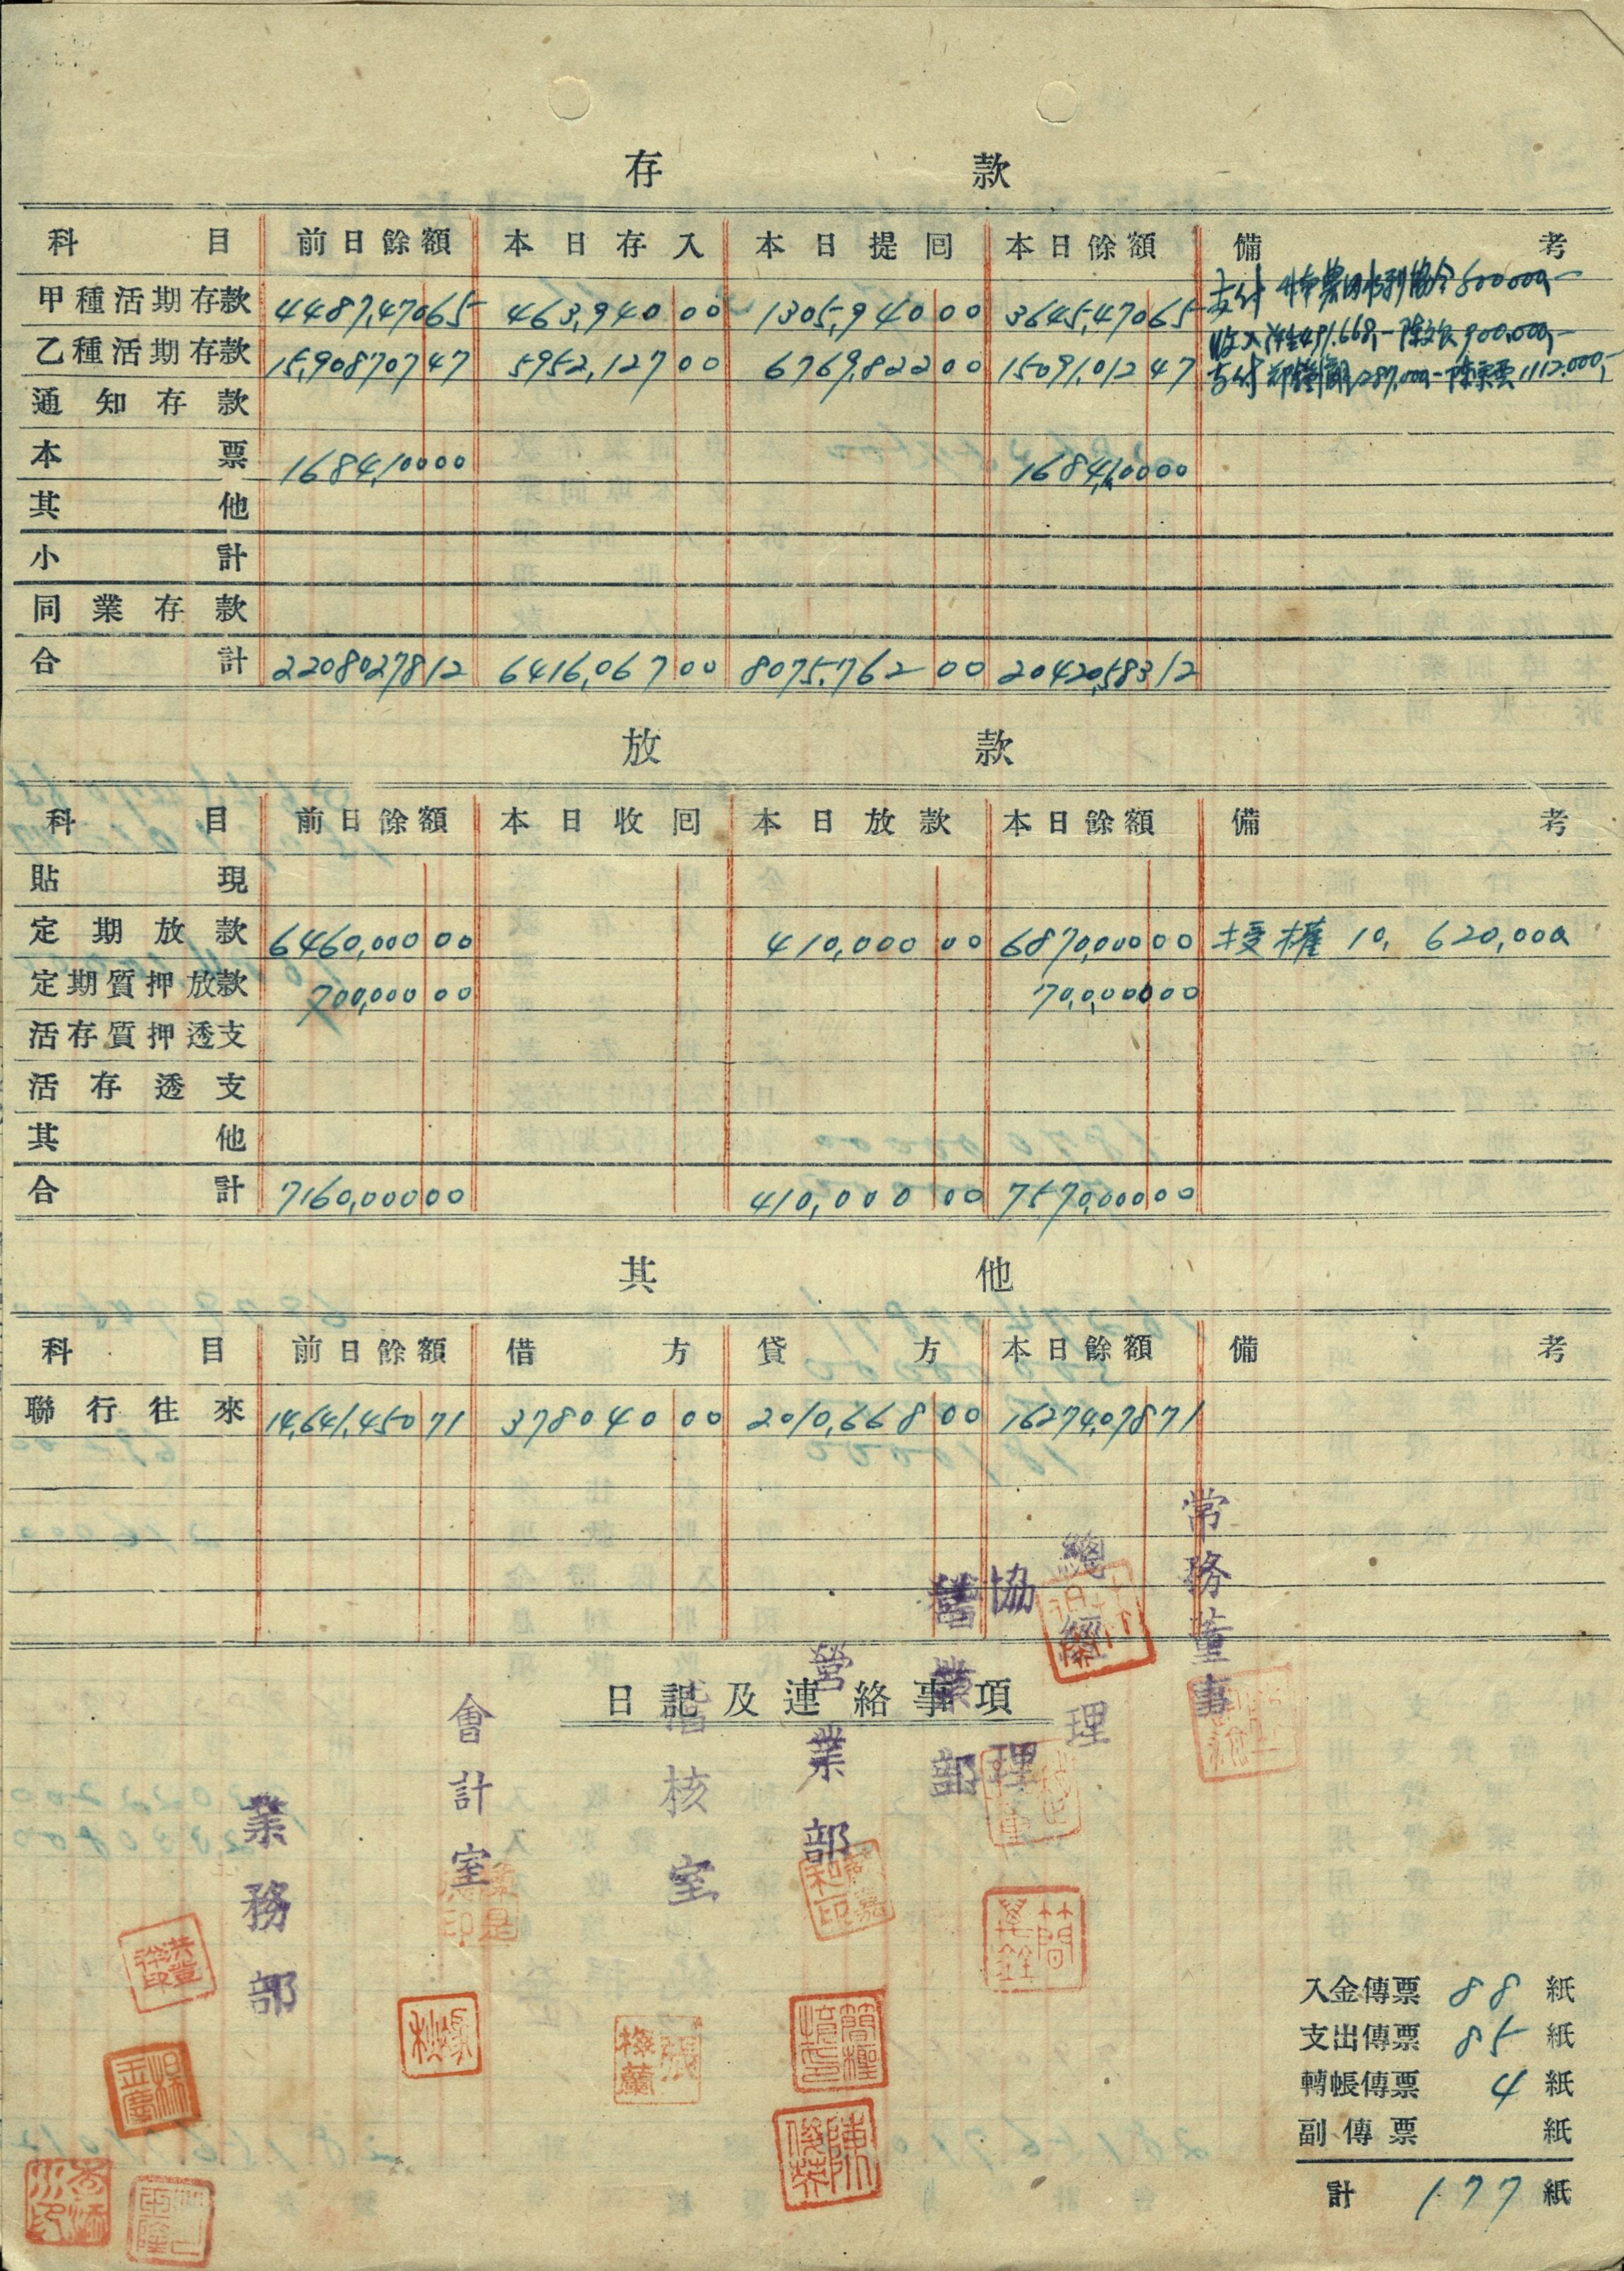 存款
科目 前日餘額 本日存入 本日提囘 本日餘額 備考
甲種活期存款 4487,470 65 463,940 00 1305,940 00 3645,470 65 支付 600000-
乙種活期存款 15,908707 47 5952,127 00 6769,822 00 15091,012 47 收入 491.668,- 900,000,-
支付 1112.000,-
通知存款
本票 1684,100 00 1684,100 00
其他
小計
同業存款
合計 22080278 12 6416,067 00 8075,762 00 20420,583 12
放款
科目 前日餘額 本日收囘 本日放款 本日餘額 備考
貼現
定期放款 6460,000 00 410,000 00 6870,000 00 授權 10,620,000
定期質押放款 700,000 00 70,0,000 00
活存質押透支
活存透支
其他
合計 7160,000 00 410,000 00 7570,000 00
其他
科目 前日餘額 借方 貸方 本日餘額 備考
聯行往來 14,641,450 71 378040 00 2010,668 00 16274,078 71
日記及連絡事項
常務董事
總經理
協理
營業部
營業部
稽核室
會計室
業務部
入金傳票 88 紙
支出傳票 85 紙
轉帳傳票 4 紙
副傳票 紙
計 177 紙